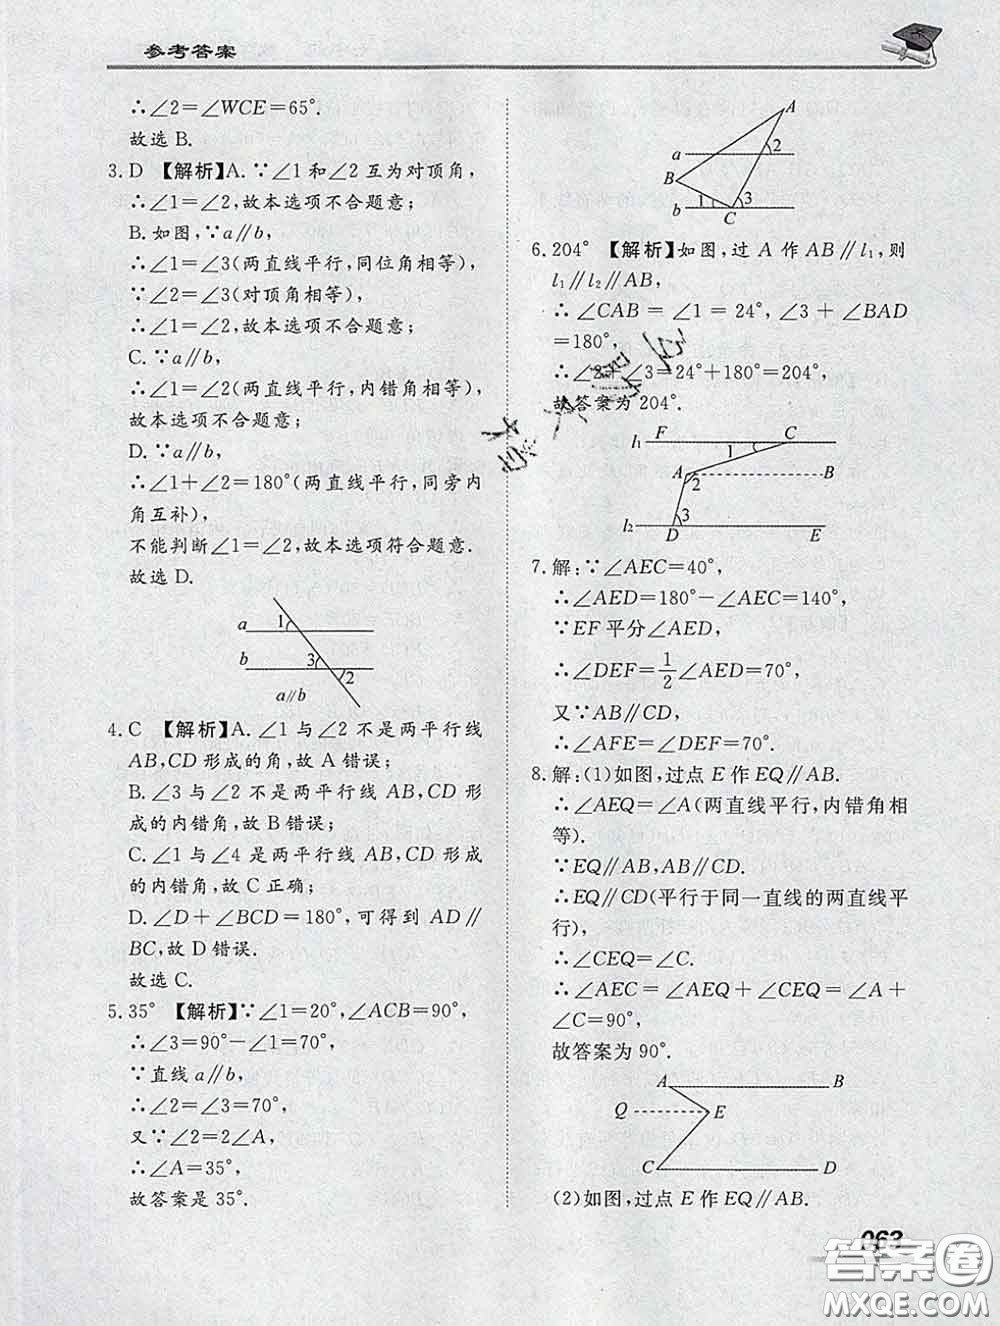 参考答案
∴∠2=∠WCE=65°.
故选 B.
3. D 【解析】A. ∵∠1 和∠2 互为对顶角,
∴∠1=∠2,故本选项不合题意;
B. 如图,∵a∥b,
∴∠1=∠3(两直线平行,同位角相等),
∵∠2=∠3(对顶角相等),
∴∠1=∠2,故本选项不合题意;
C. ∵a∥b,
∴∠1=∠2(两直线平行,内错角相等),
故本选项不合题意;
D. ∵a∥b,
∴∠1+∠2=180°(两直线平行,同旁内
角互补),
不能判断∠1=∠2,故本选项符合题意.
故选 D.
a 1
b 3 2
a∥b
4. C 【解析】A. ∠1 与∠2 不是两平行线
AB,CD 形成的角,故 A 错误;
B. ∠3 与∠2 不是两平行线 AB,CD 形
成的内错角,故 B 错误;
C. ∠1 与∠4 是两平行线 AB,CD 形成
的内错角,故 C 正确;
D. ∠D+∠BCD=180°,可得到 AD∥
BC,故 D 错误.
故选 C.
5. 35° 【解析】∵∠1=20°,∠ACB=90°,
∴∠3=90°-∠1=70°,
∵直线 a∥b,
∴∠2=∠3=70°,
又∵∠2=2∠A,
∴∠A=35°,
故答案是 35°.
A
a 2
B
b 1 3
C
6. 204° 【解析】如图,过 A 作 AB∥l₁,则
l₁∥l₂∥AB,
∴∠CAB=∠1=24°,∠3+∠BAD
=180°,
∴∠2+∠3=24°+180°=204°,
故答案为 204°.
l₁ F C
1
A 2 B
3
l₂ D E
7. 解:∵∠AEC=40°,
∴∠AED=180°-∠AEC=140°,
∵EF 平分∠AED,
∴∠DEF=1/2∠AED=70°,
又∵AB∥CD,
∴∠AFE=∠DEF=70°.
8. 解:(1)如图,过点 E 作 EQ∥AB.
∴∠AEQ=∠A(两直线平行,内错角相
等).
∵EQ∥AB,AB∥CD.
∴EQ∥CD(平行于同一直线的两直线平
行),
∴∠CEQ=∠C.
∴∠AEC=∠AEQ+∠CEQ=∠A+
∠C=90°,
故答案为 90°.
A B
Q E
C D
(2)如图,过点 E 作 EQ∥AB.
063
答案圈
MXQE.COM